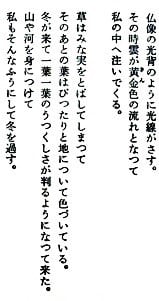 仏像の光背のように光線がさす。
その時雲が黄金色の流れとなつて
きん
私の中へ注いでくる。
草はみな実をとばしてしまつて
そのあとの葉はぴつたりと地について色づいている。
冬が来て一葉一葉のうつくしさが判るようになつて来た。
山や河を身につけて
私もそんなふうにして冬を過す。